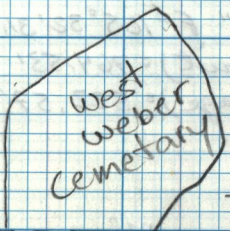 west
weber
cemetary